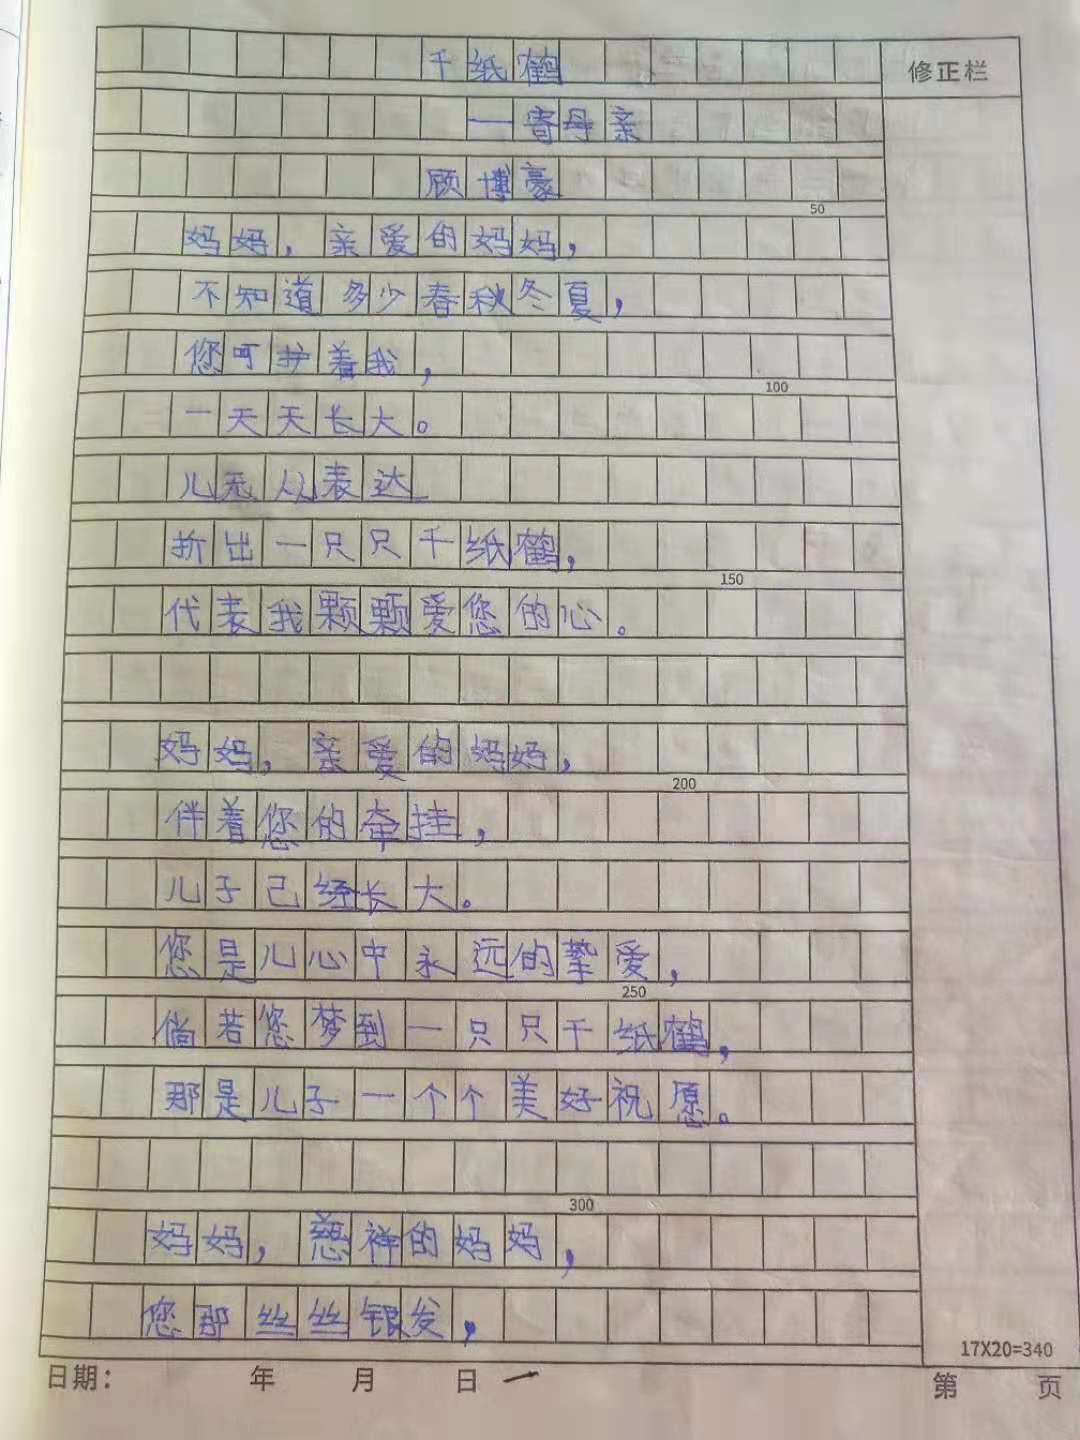 千纸鹤
修正栏
—寄母亲
顾博豪
50
妈妈，亲爱的妈妈，
不知道多少春秋冬夏，
您呵护着我，
100
一天天长大。
儿无从表达
折出一只只千纸鹤，
150
代表我颗颗爱您的心。
妈妈，亲爱的妈妈，
200
伴着您的牵挂，
儿子已经长大。
您是儿心中永远的挚爱，
250
倘若您梦到一只只千纸鹤，
那是儿子一个个美好祝愿。
300
妈妈，慈祥的妈妈，
您那丝丝银发，
17X20=340
日期： 年 月 日
第 页